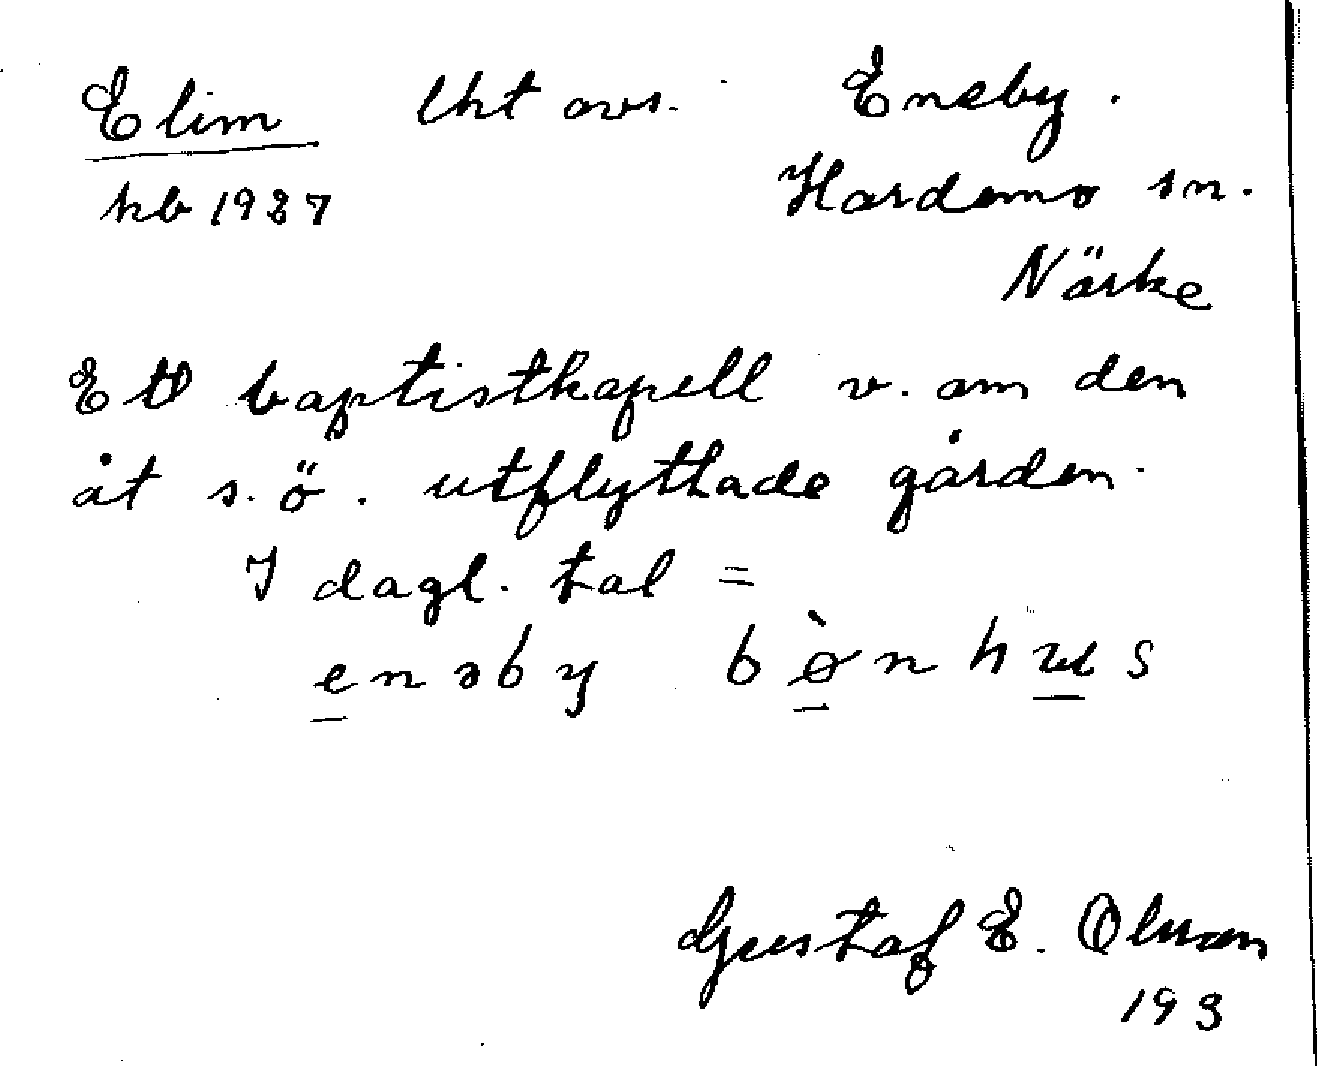 Elim lht avs. Eneby.
hb 1937 Hardemo sn.
Närke
Ett baptistkapell v. om den
åt s.ö. utflyttade gården.
I dagl. tal =
enəby bø̀nhus
Gustaf E. Olsson
193